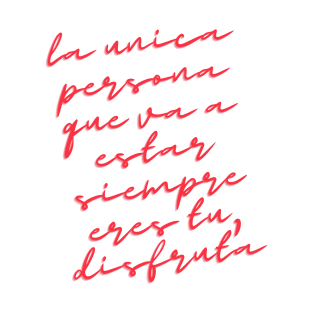 la unica
persona
que va a
estar
siempre
eres tu,
disfruta